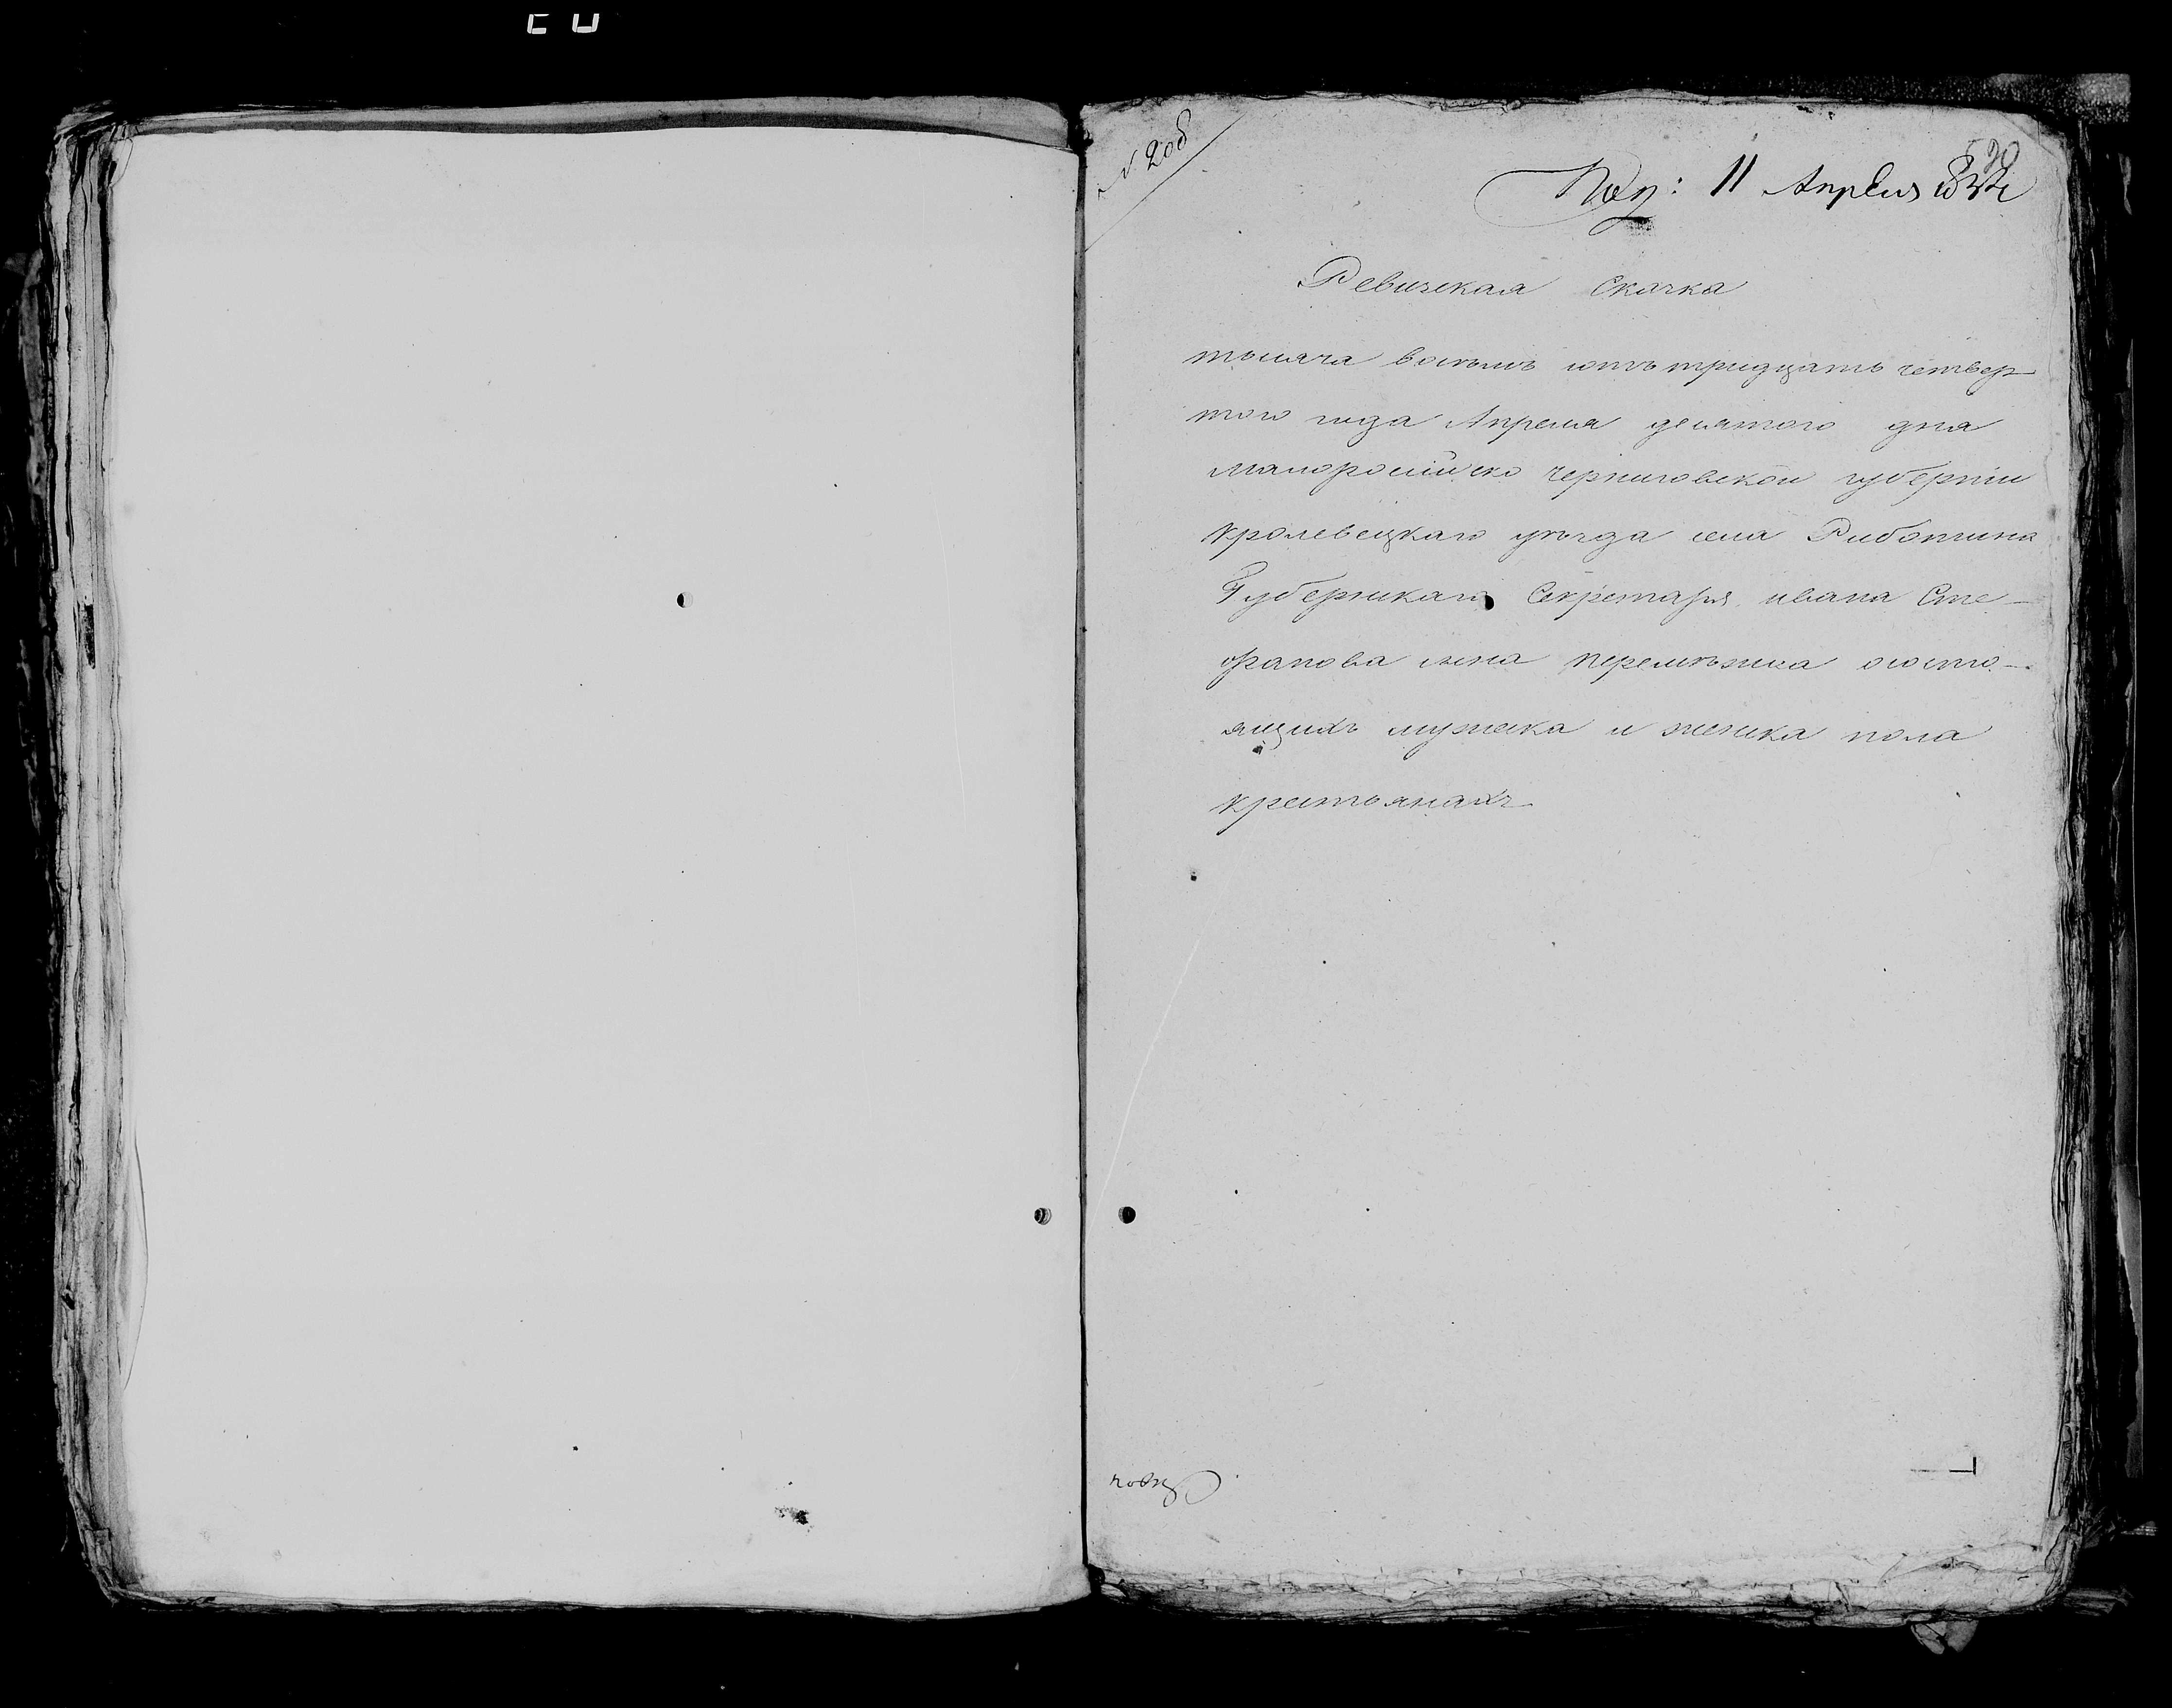 N. 208
530
Пол: 11 Апреля 1834
Ревизская Скаска
тысяча восемь сотъ тридцать четвер-
того года Апреля девятого дня
малоросійско черниговской губерніи
кролевецкаго уезда села Риботина
Губернскаго Секретаря ивана Сте-
фанова сына о состо-
ящихъ мужеска и женска пола
крестьянахъ